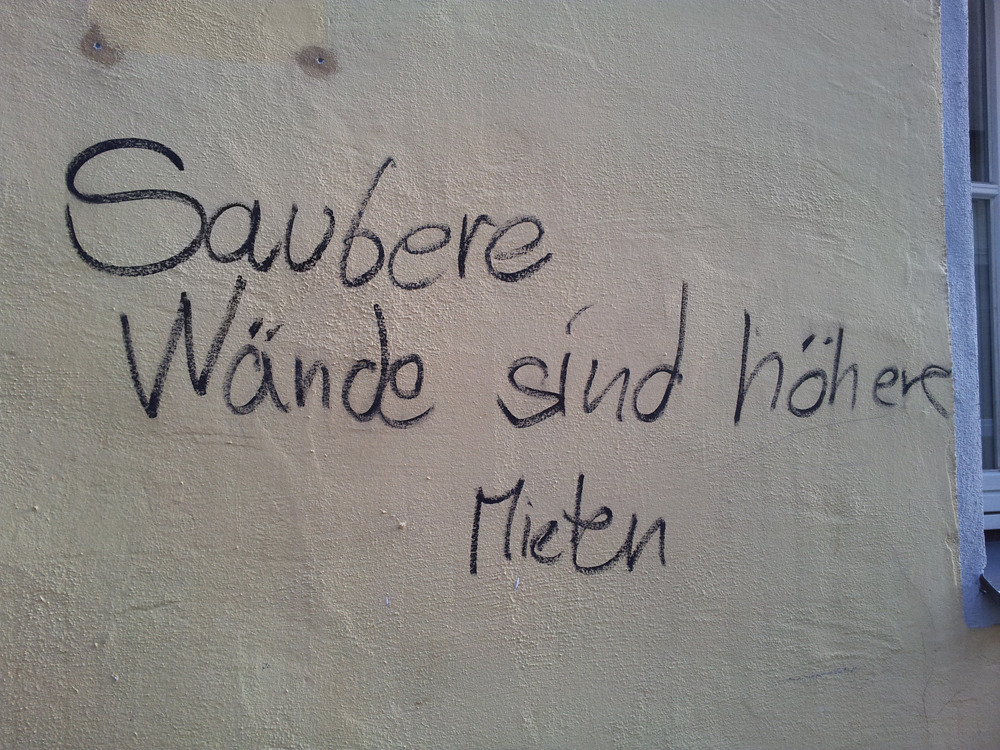 Saubere
Wände sind höhere
Mieten